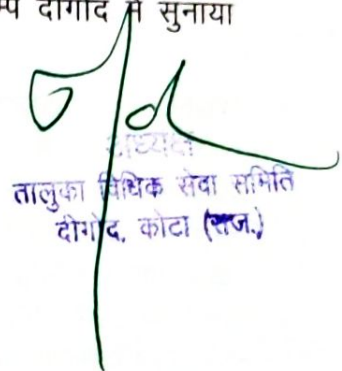 दीगोद में सुनाया
अध्यक्ष
तालुका विधिक सेवा समिति
दीगोद, कोटा (राज.)